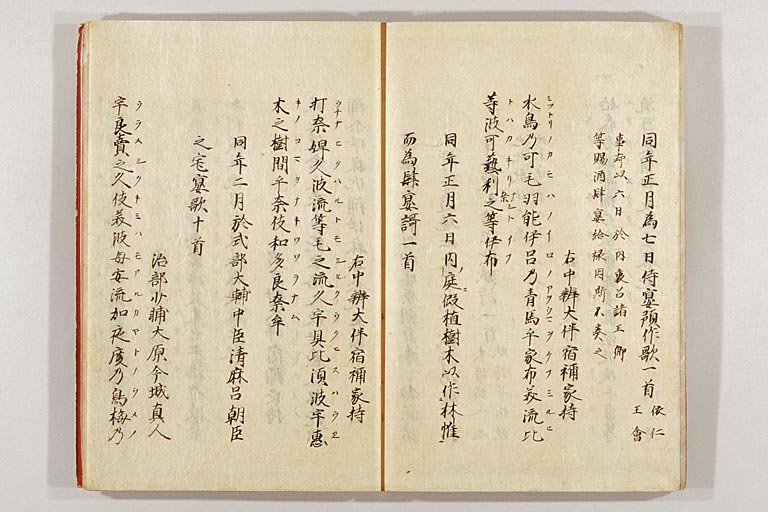 同年正月為七日侍宴預作歌一首 依仁王會
事却以六日於内裏召諸王卿
等賜酒肆宴給禄因斯不奏之
右中辨大伴宿祢家持
ミツトリノカモハノイロノアヲウマヲケフミルヒ
水鳥乃可毛羽能伊呂乃青馬乎家布美流比
トハカキリナシトイフ
等波可藝利奈之等伊布
同年正月六日内庭假植樹木以作林惟
而為肆宴謌一首
右中辨大伴宿祢家持
ウチナヒクハルトモシルクウクヒスハウヱ
打奈婢久波流等毛之流久宇具比須波宇恵
キノコマヲナキワタラナム
木之樹間乎奈伎和多良奈牟
同年二月於式部大輔中臣清麻呂朝臣
之宅宴歌十首
治部少輔大原今城真人
ウラメシクキミハモアルカヤトノウメノ
宇良賣之久伎美波母安流加夜度乃烏梅乃